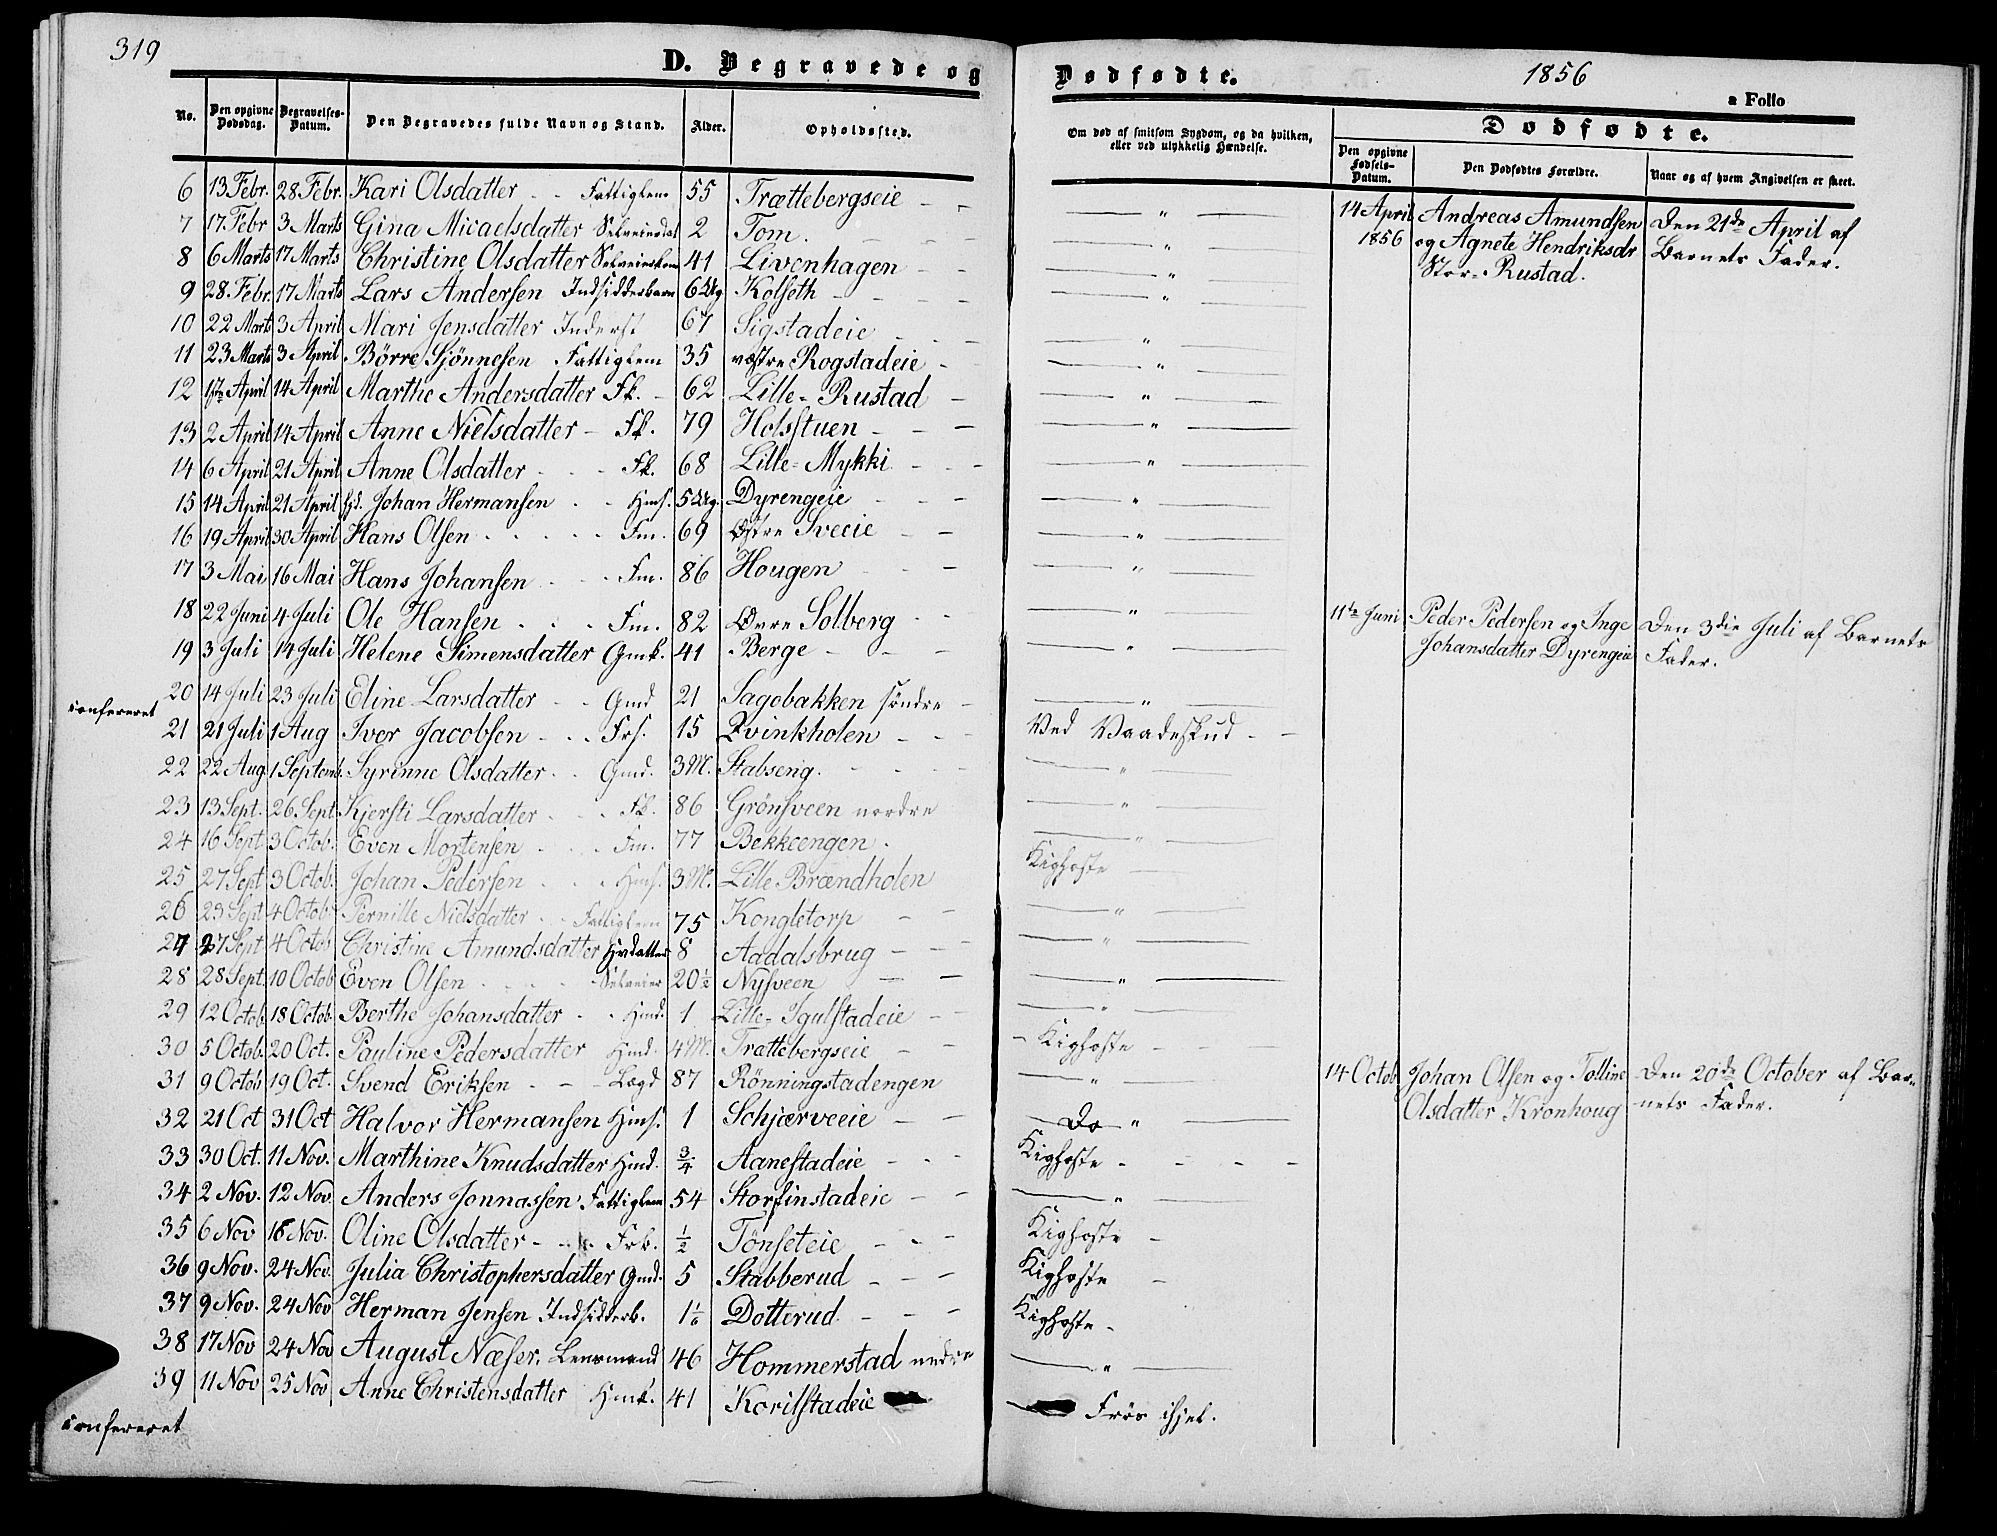 319
D. Begravede og Dødfødte.
1856
a Folio
No. Den opgivne Dødsdag. Begravelses-Datum. Den Begravedes fulde Navn og Stand. Alder. Opholdssted. Om død af smitsom Sygdom, og da hvilken, eller ved ulykkelig Hændelse.
Dødfødte.
Den opgivne Fødsels-Datum. Den Dødfødtes Forældre. Naar og af hvem Angivelsen er skeet.
6 13 Febr. 28 Febr. Kari Olsdatter - - Fattiglem 55 Trættebergseie - - — " —
14 April 1856 Andreas Amundsen og Agnete Hendriksdr Stor-Rustad. Den 21de April af Barnets Fader.
7 17 Febr 3 Marts Gina Micaelsdatter Selveierdat 2 Tom. — " —
8 6 Marts 17 Marts Christine Olsdatter Selveierkone 41 Livenhagen - - — " —
9 28. Febr. 17 Marts Lars Andersen Indsidderbarn 6 Ug Kolseth - - — " —
10 22 Marts 3 April Mari Jensdatter Inderst 67 Sigstadeie — " —
11 23 Marts 3 April Børre Sjønnesen Fattiglem 35 vestre Rogstadeie - — " —
12 1ste April 14 April Marthe Andersdatter Fk. - 62 Lille-Rustad - — " —
13 2 April 14 April Anne Nielsdatter - Fk. 79 Holsstuen - - - — " —
14 6 April 21 April Anne Olsdatter - - Fk. 68 Lille-Mykki - - - — " —
15 14 April 21 April Johan Hermansen - - Hms. 5 Ug. Dyrengeie - - — " —
16 19 April 30 April Hans Olsen - - - - Fm. 69 Østre Sveeie - - — " —
17 3 Mai 16 Mai Hans Johansen - - Fm. 86 Hougen - — " —
18 22 Juni 4 Juli Ole Hansen - - - Fm. 82 Øvre Solberg - - — " —
11te Juni Peder Pedersen og Inge Johansdatter Dyrengeie Den 3die Juli af Barnets Fader.
19 3 Juli 14 Juli Helene Simensdatter Gmk. 41 Berge - - - — " —
20 14 Juli 23 Juli Eline Larsdatter - - Gmd 21 Sagobakken søndre - — " —
confereret
21 21 Juli 1 Aug Iver Jacobsen - - - Frs. 15 Qvinkholen - - - Ved Vaadeskud - -
22 22 Aug. 1 Septemb. Syrinne Olsdatter - - Gmd. 3 M. Stabseng. - - - — " —
23 13 Sept. 26 Sept. Kjersti Larsdatter - - Fk. 86 Grönsveen nordre — " —
24 16 Sept 3 Octob. Even Mortensen - - - Fm. 77 Bekkeengen. — " —
25 27 Sept 3 Octob. Johan Pedersen - - - Hms. 3 M. Lille Brændholen Kighoste —
26 23 Sept 4 Octob Pernille Nielsdatter - - Fattiglem 75 Kongletorp - - — " —
27 27 Sept 4 Octob Christine Amundsdatter Hvdatter 8 Aadalsbrug - - — " —
28 28 Sept. 10 Octob Even Olsen - - - - Selveier 20½ Nysveen - - — " —
29 12 Octob 18 Octob. Berthe Johansdatter - - Hmd. 1 Lille-Igulstadeie - - — " —
30 5 Octob. 20 Oct. Pauline Pedersdatter Hmd. 4 M. Trættebergseie - - - Kighoste - - -
31 9 Octob 19 Oct. Svend Eriksen - - - Lægd 87 Rönningstadengen — " —
14 Octob Johan Olsen og Tolline Olsdatter Kronhoug Den 20de October af Barnets Fader.
32 21 Oct 31 Oct Halvor Hermansen Hms. 1 Schjærveeie - - — Do " —
33 30 Oct. 11 Nov. Marthine Knudsdatter Hmd. ¾ Aanestadeie - - - Kighoste - - - -
34 2 Nov. 12 Nov. Anders Jonnassen Fattiglem 54 Storfinstadeie - - — " —
35 6 Nov 16 Nov. Oline Olsdatter - - - Frb. ½ Tönseteie - - - Kighoste -
36 9 Nov. 24 Nov. Julia Christophersdatter Gmd. 5 Stabberud - - - Kighoste -
37 9 Nov. 24 Nov Herman Jensen Indsidderb. 1⅙ Dotterud - - Kighoste -
38 17 Nov 24 Nov August Næser. Lensmand 46 Hommerstad nedre — " —
39 11 Nov 25 Nov Anne Christensdatter Hmk. 41 Korilstadeie Frøs ihjel.
confereret